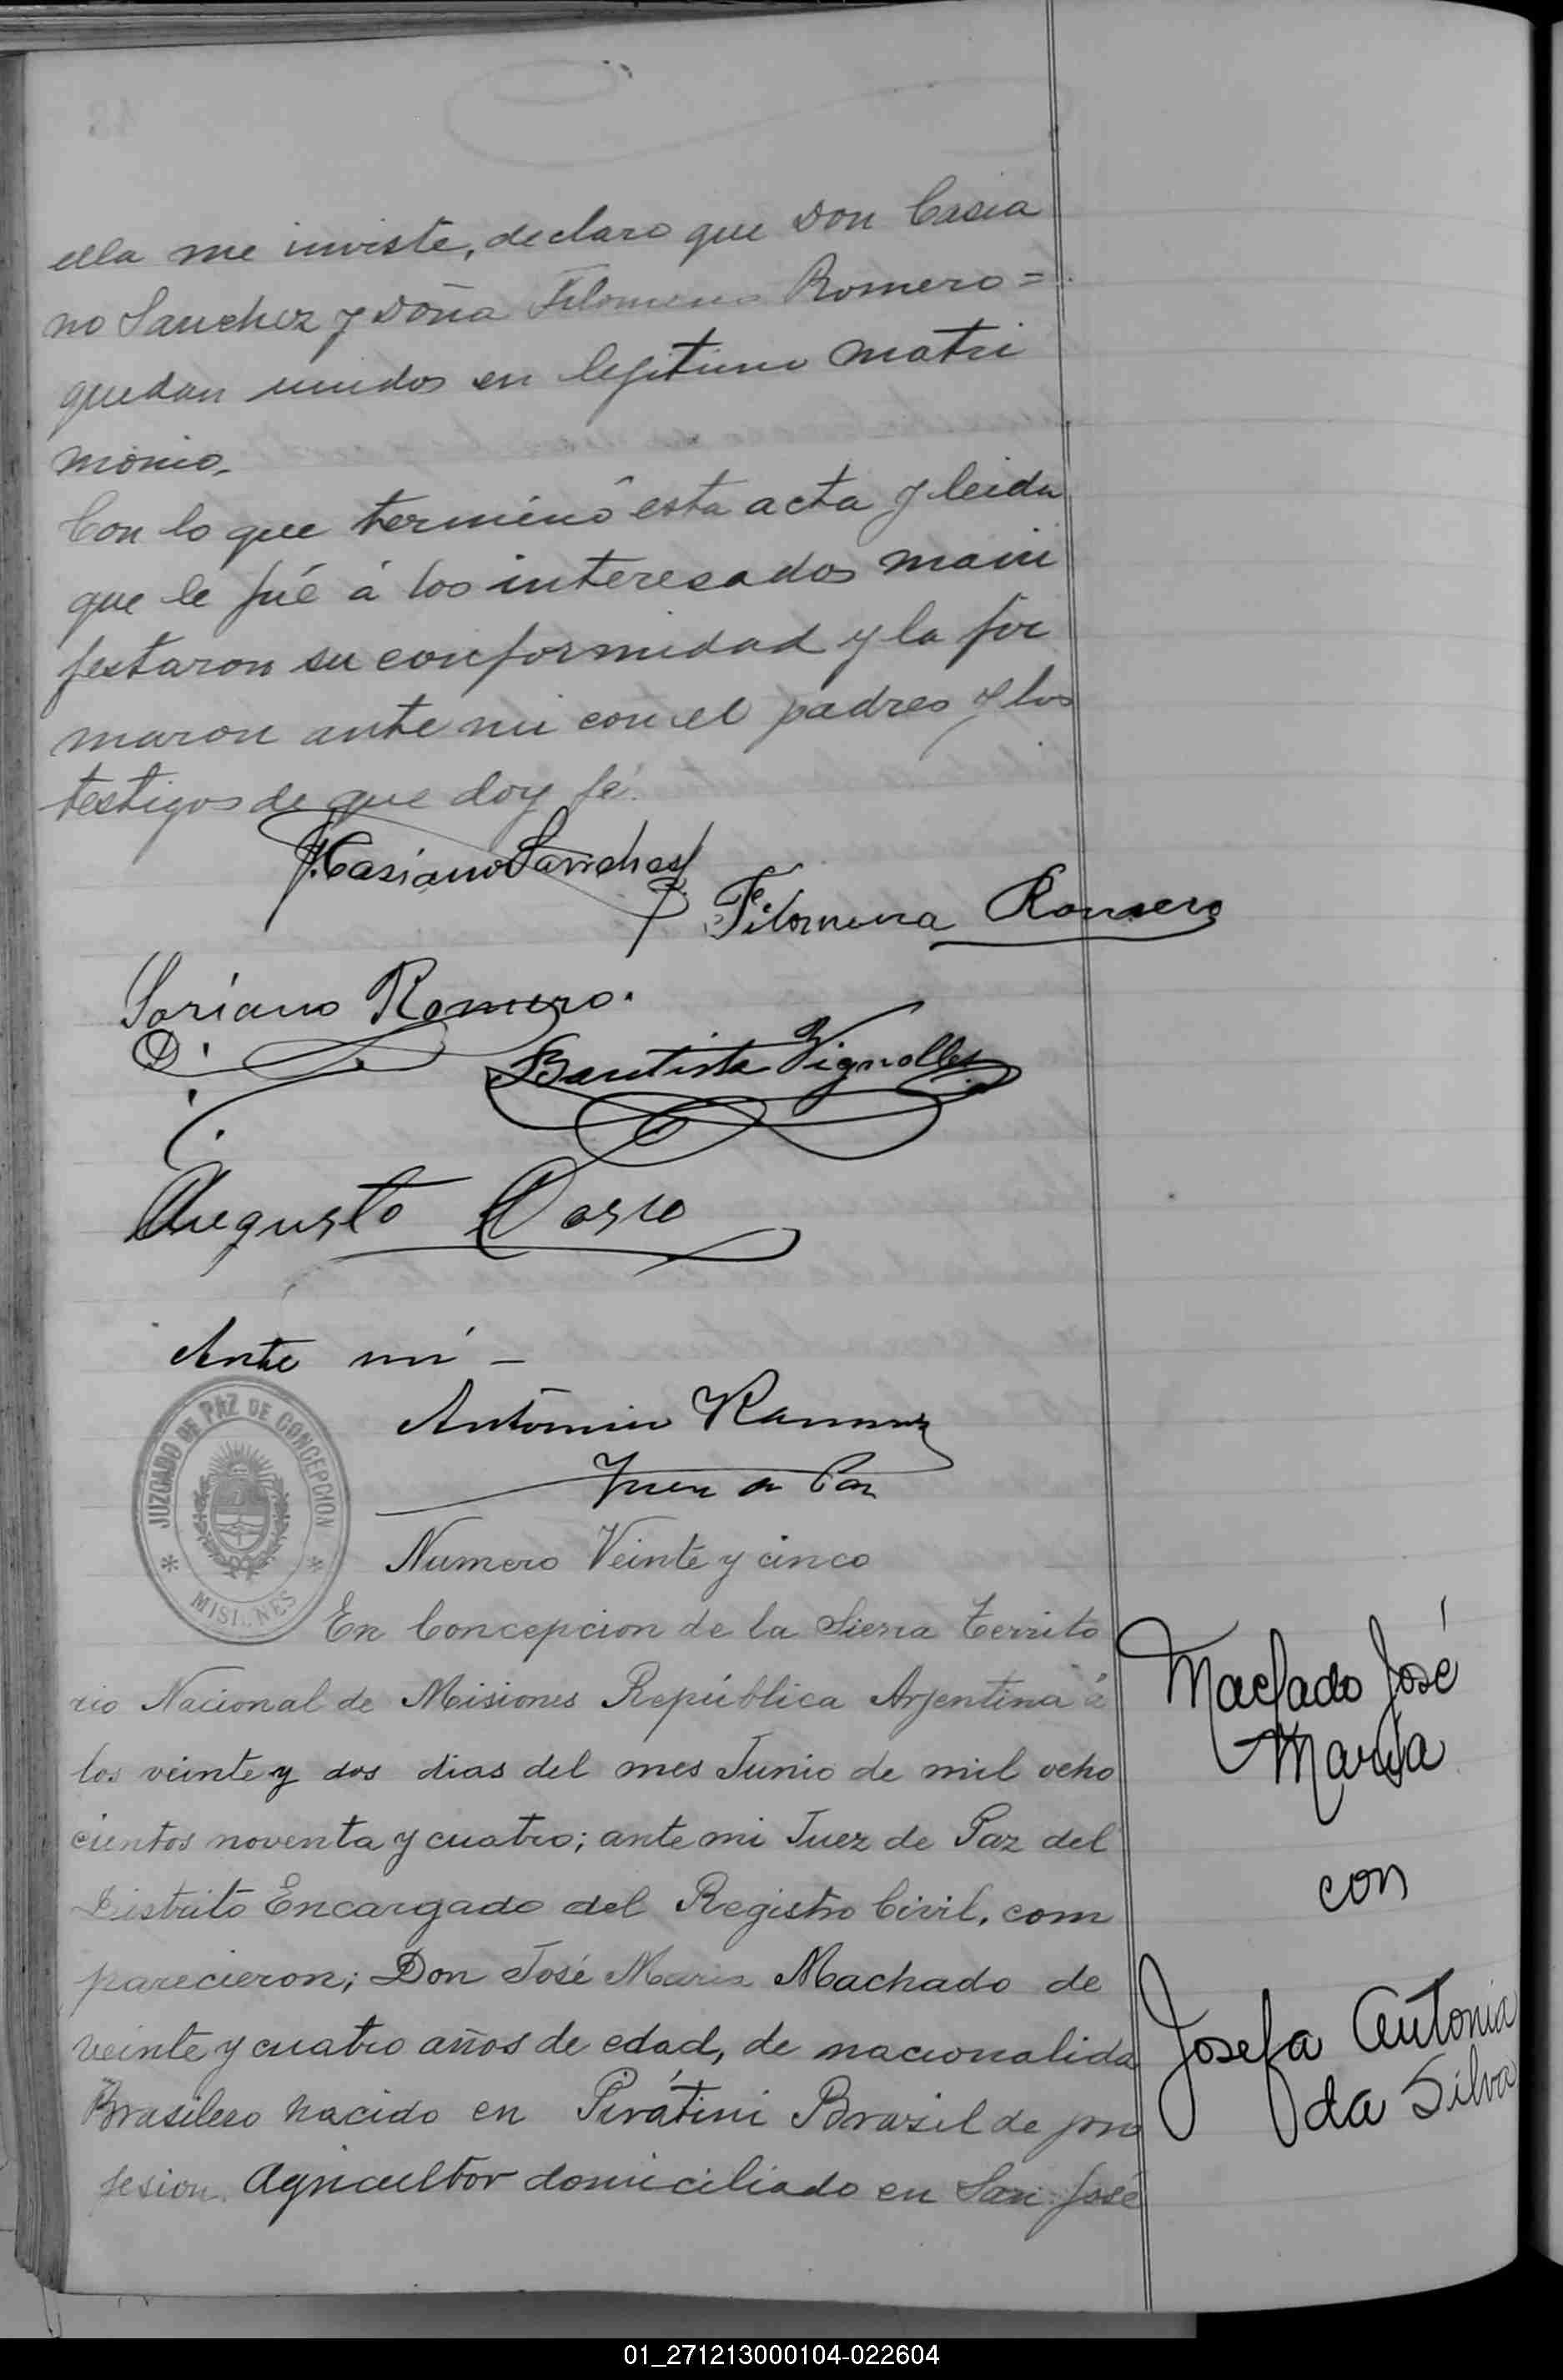 ella me inviste, declaro que Don Casia
no Sanchez y Doña Filomena Romero=
quedan unidos en legitimo matri
monio.
Con lo que terminó esta acta y leida
que le fué á los interesados mani
festaron su conformidad y la fir
maron ante mi con el padres y los
testigos de que doy fé.
J. Casiano Sanches
Filomena Romero
Soriano Romero.
Bautista Vignolles
Augusto
Ante mí -
Antonio Ramirez
Juez de Paz
JUZGADO DE PAZ DE CONCEPCION
* MISIONES *
Numero Veinte y cinco
En Concepcion de la Sierra Territo
rio Nacional de Misiones República Arjentina á
los veinte y dos dias del mes Junio de mil ocho
cientos noventa y cuatro; ante mi Juez de Paz del
Distrito Encargado del Registro Civil, com
parecieron; Don José Maria Machado de
veinte y cuatro años de edad, de nacionalida
Brasilero nacido en Piratini Brasil de pro
fesion Agricultor domiciliado en San José
Machado José
Maria
con
Josefa Antonia
da Silva
01_271213000104-022604